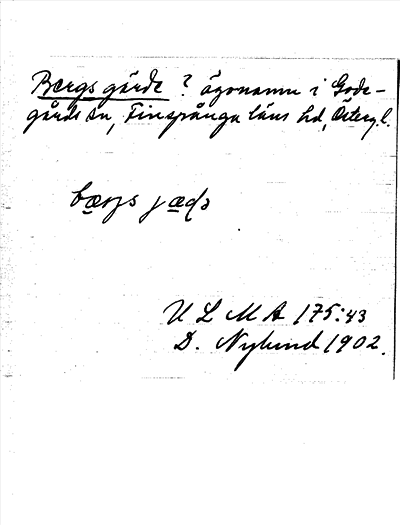 Bergsgärde ? ägonamn i Gode-
gårds sn, Finspånga läns hd, Östergl.
bærjs jæḍə
U L M A 175:43
D. Nylund 1902.